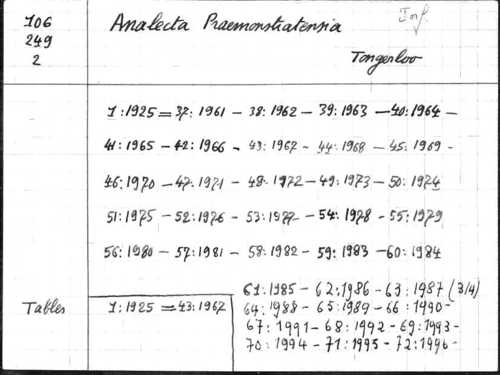 106
249
2
Analecta Praemonstratensia
Inf.
Tongerloo
1:1925 = 37:1961 - 38:1962 - 39:1963 - 40:1964 -
41:1965 - 42:1966 - 43:1967 - 44:1968 - 45:1969 -
46:1970 - 47:1971 - 48:1972 - 49:1973 - 50:1974
51:1975 - 52:1976 - 53:1977 - 54:1978 - 55:1979
56:1980 - 57:1981 - 58:1982 - 59:1983 - 60:1984
61:1985 - 62:1986 - 63:1987 (3/4)
64:1988 - 65:1989 - 66:1990 -
67:1991 - 68:1992 - 69:1993 -
70:1994 - 71:1995 - 72:1996 -
Tables
1:1925 = 43:1967